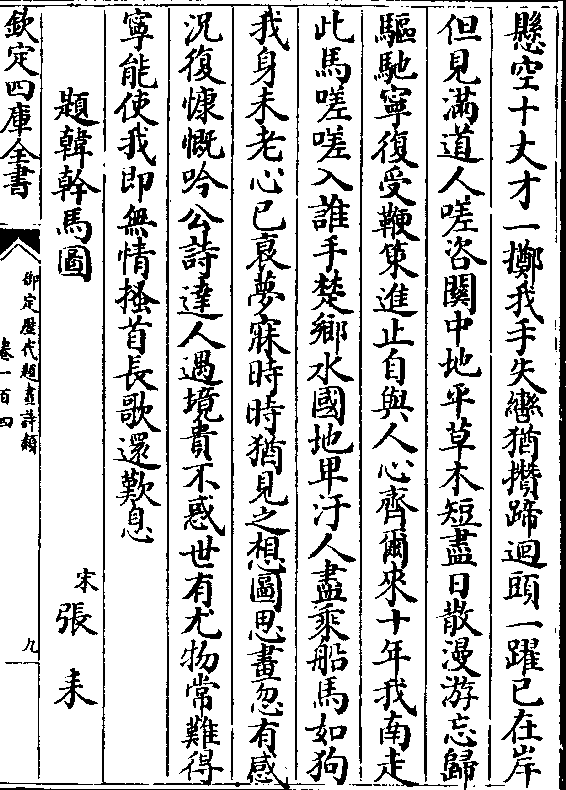 懸空十丈才一擲我手失轡猶攢蹄迴頭一躍已在岸
但見滿道人嗟咨關中地平草木短盡日散漫游忘歸
驅馳寧復受鞭策進止自與人心齊爾來十年我南走
此馬嗟嗟入誰手楚鄉水國地卑汙人盡乘船馬如狗
我身未老心已衰夢寐時時猶見之想圖思畫忽有感
況復慷慨吟公詩達人遇境貴不惑世有尤物常難得
寧能使我即無情搔首長歌還歎息
題韓幹馬圖
宋張耒
欽定四庫全書
御定歷代題畫詩類
卷一百四
九